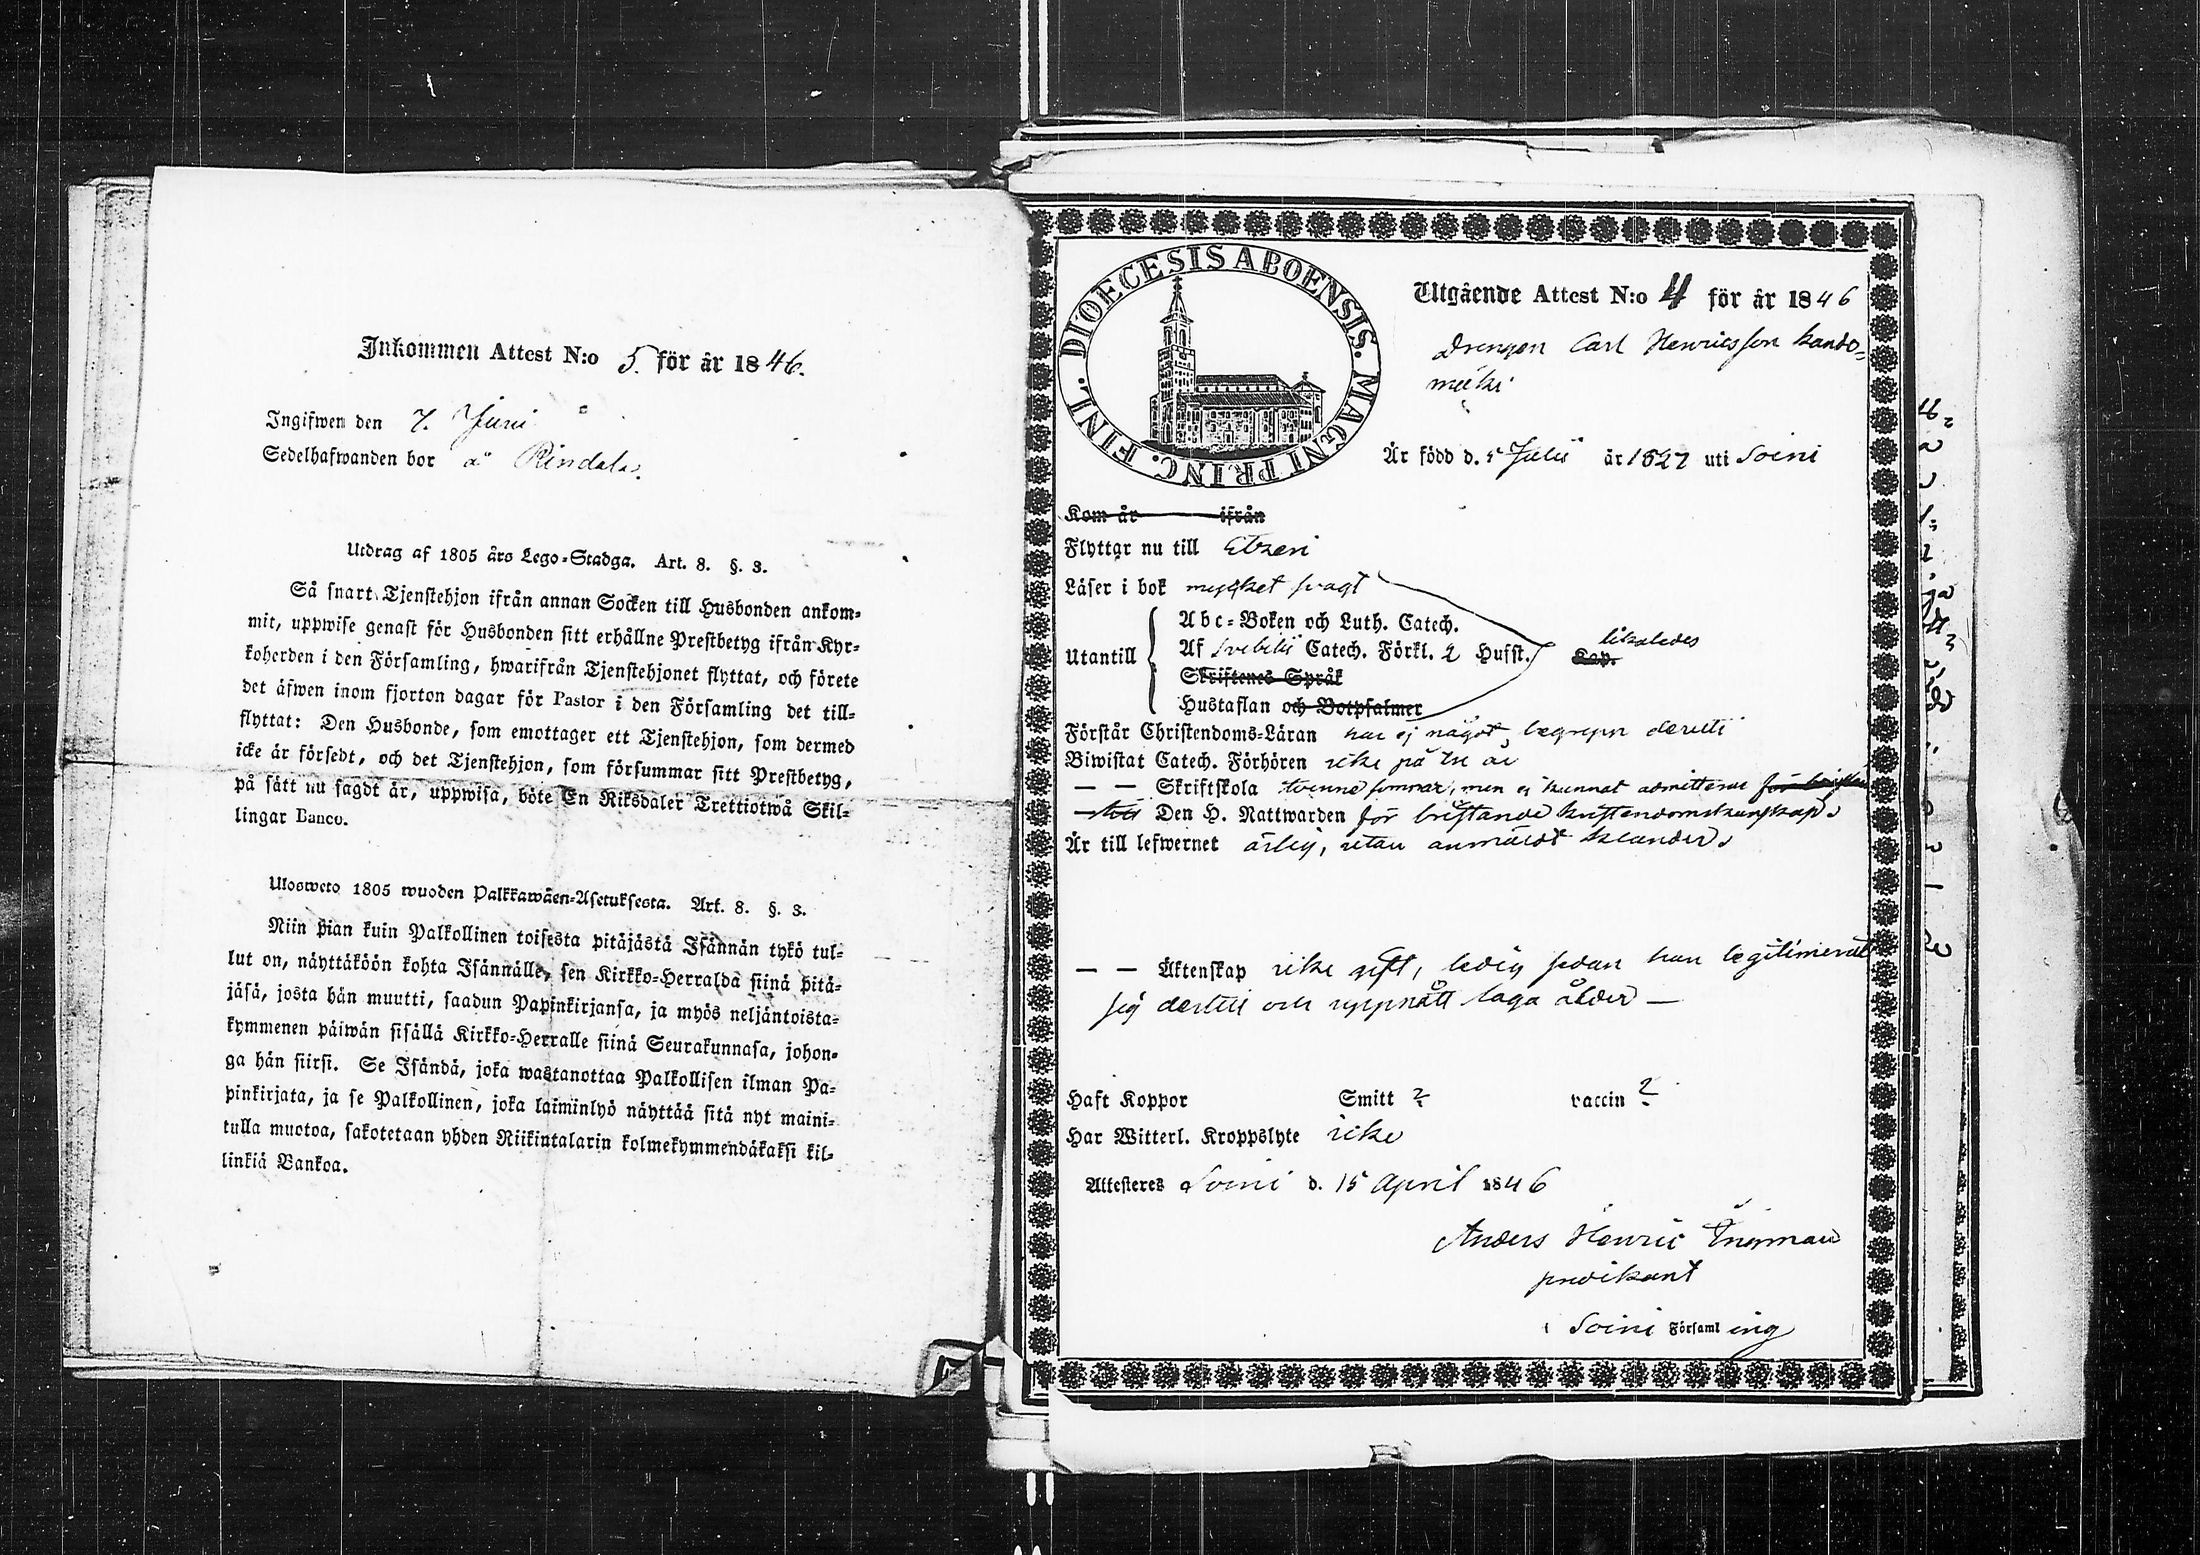 Inkommen Attest N:o 5. för år 1846.
Ingifwen den 7. Juni
Sedelhafwanden bor å Rindala.
Utdrag af 1805 års Lego-Stadga. Art. 8. §. 3.
Så snart Tjenstehjon ifrån annan Socken till Husbonden ankom-
mit, uppwise genast för Husbonden sitt erhållne Prestbetyg ifrån Kyr-
koherden i den Församling, hwarifrån Tjenstehjonet flyttat, och förete
det äfwen inom fjorton dagar för Pastor i den Församling det till-
flyttat: Den Husbonde, som emottager ett Tjenstehjon, som dermed
icke är försedt, och det Tjenstehjon, som försummar sitt Prestbetyg,
på sätt nu sagdt är, uppwisa, böte En Riksdaler Trettiotwå Skil-
lingar Banco.
Ulosweto 1805 wuoden Palkkawäen-Asetuksesta. Art. 8. §. 3.
Niin pian kuin Palkollinen toisesta pitäjästä Isännän tykö tul-
lut on, näyttäköön kohta Isännälle, sen Kirkko-Herralda siinä pitä-
jäsä, josta hän muutti, saadun Papinkirjansa, ja myös neljäntoista-
kymmenen päiwän sisällä Kirkko-Herralle siinä Seurakunnasa, johon-
ga hän siirsi. Se Isändä, joka wastanottaa Palkollisen ilman Pa-
pinkirjata, ja se Palkollinen, joka laiminlyö näyttää sitä nyt maini-
tulla muotoa, sakotetaan yhden Riikintalarin kolmekymmendäkaksi kil-
linkiä Bankoa.
DIOECESIS ABOENSIS. MAGNI PRINC. FINL.
Utgående Attest N:o 4 för år 1846
Drengen Carl Henricsson Kando-
mäki
Är född d. 5 Julii år 1827 uti Soini
Kom år ifrån
Flyttar nu till Etseri
Läser i bok mycket svagt
Abc-Boken och Luth. Catech.
Utantill Af Svebilii Catech. Förkl. 2 Hufst. Kap. likaledes
Skriftenes Språk
Hustaflan och Botpsalmer
Förstår Christendoms-Läran har ej något begrepp dertill
Biwistat Catech. Förhören icke på tre år
— — Skriftskola tvenne somrar, men ej kunnat admitteras för bristan
— till Den H. Nattwarden för bristande kristendomskunskap.
Är till lefwernet ärlig, utan anmäldt klander.
— — Äktenskap icke gift, ledig sedan han legitimerat
sig dertill och uppnått laga ålder —
Haft Koppor Smitt ? vaccin ?
Har Witterl. Kroppslyte icke
Attesteras Soini d. 15 April 1846
Anders Henric
predikant
i Soini Församling